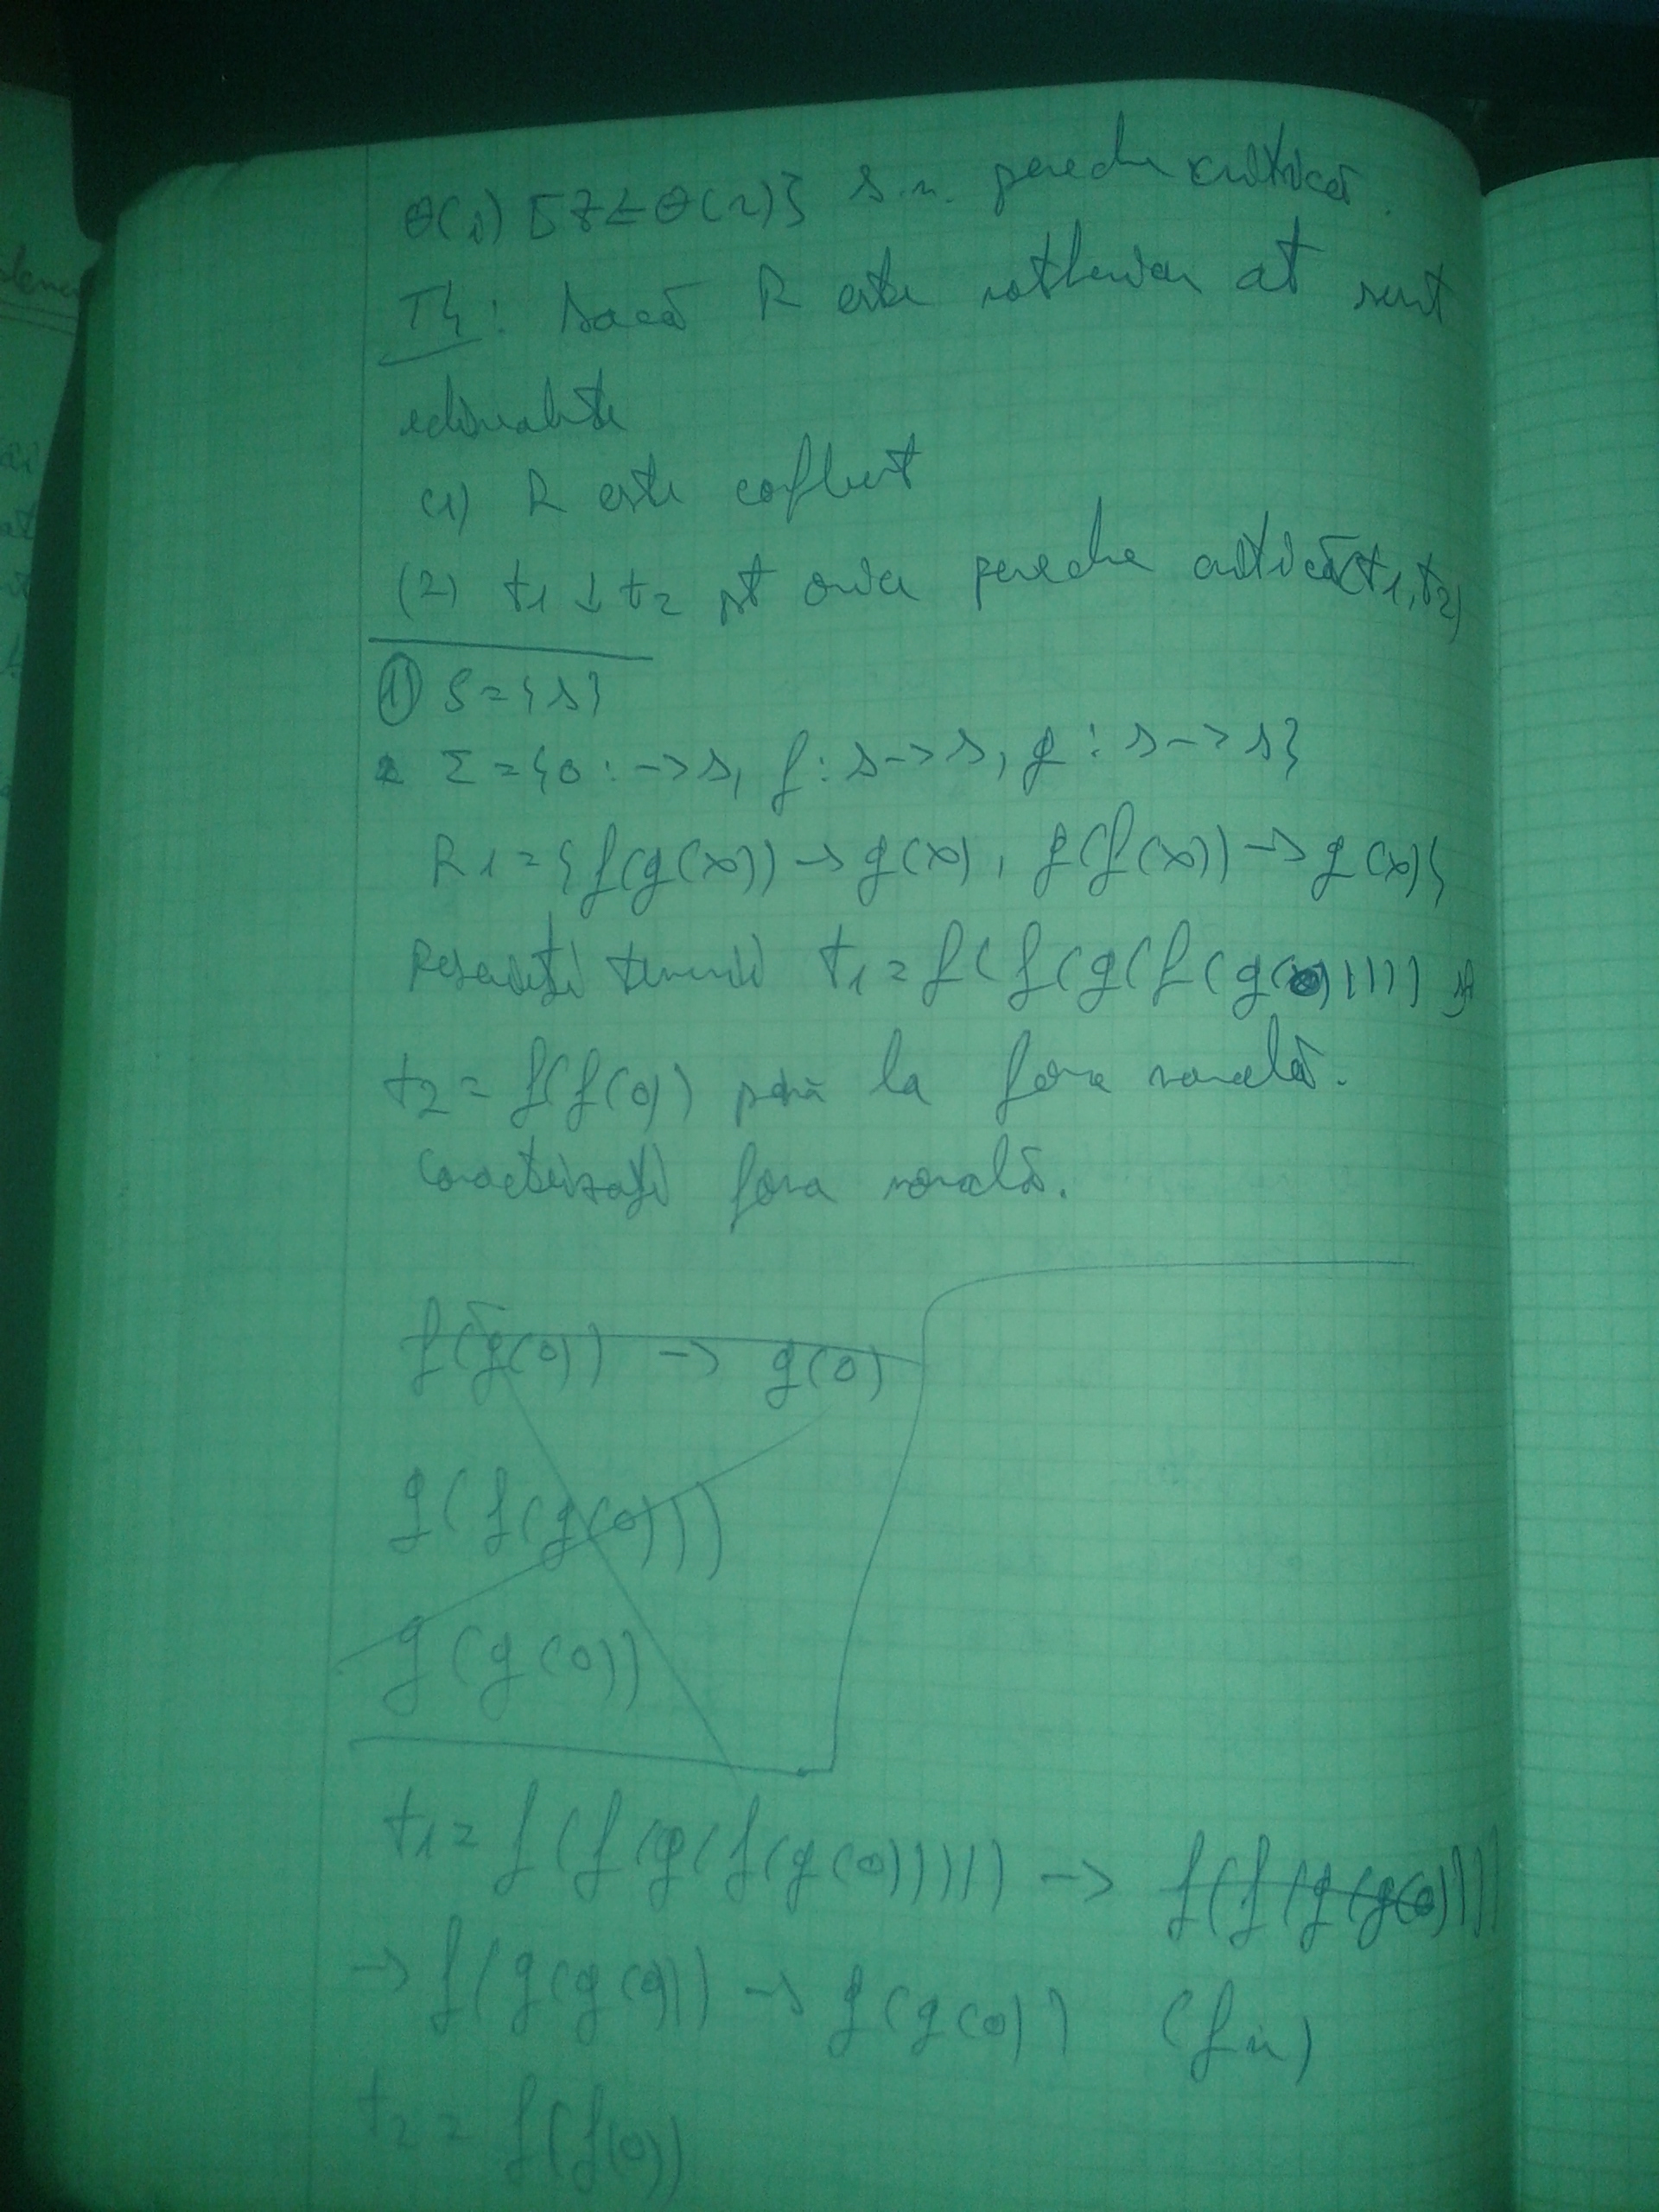 θ(r) [z ← θ(r)] s.n. pereche critică.
Th: Dacă R este noetherian at sunt
echivalente
(1) R este confluent
(2) t1 ↓ t2 pt orice pereche critică (t1, t2)
① S = {s}
Σ = {0 : -> s, f : s -> s, g : s -> s}
R1 = {f(g(x)) -> g(x), g(f(x)) -> g(x)}
Rescrieți termenii t1 = f(f(g(f(g(0))))) și
t2 = f(f(0)) până la forma normală.
Caracterizați forma normală.
f(g(0)) -> g(0)
g(f(g(0)))
g(g(0))
t1 = f(f(g(f(g(0))))) -> f(f(g(g(0))))
-> f(g(g(0))) -> g(g(0)) (fn)
t2 = f(f(0))